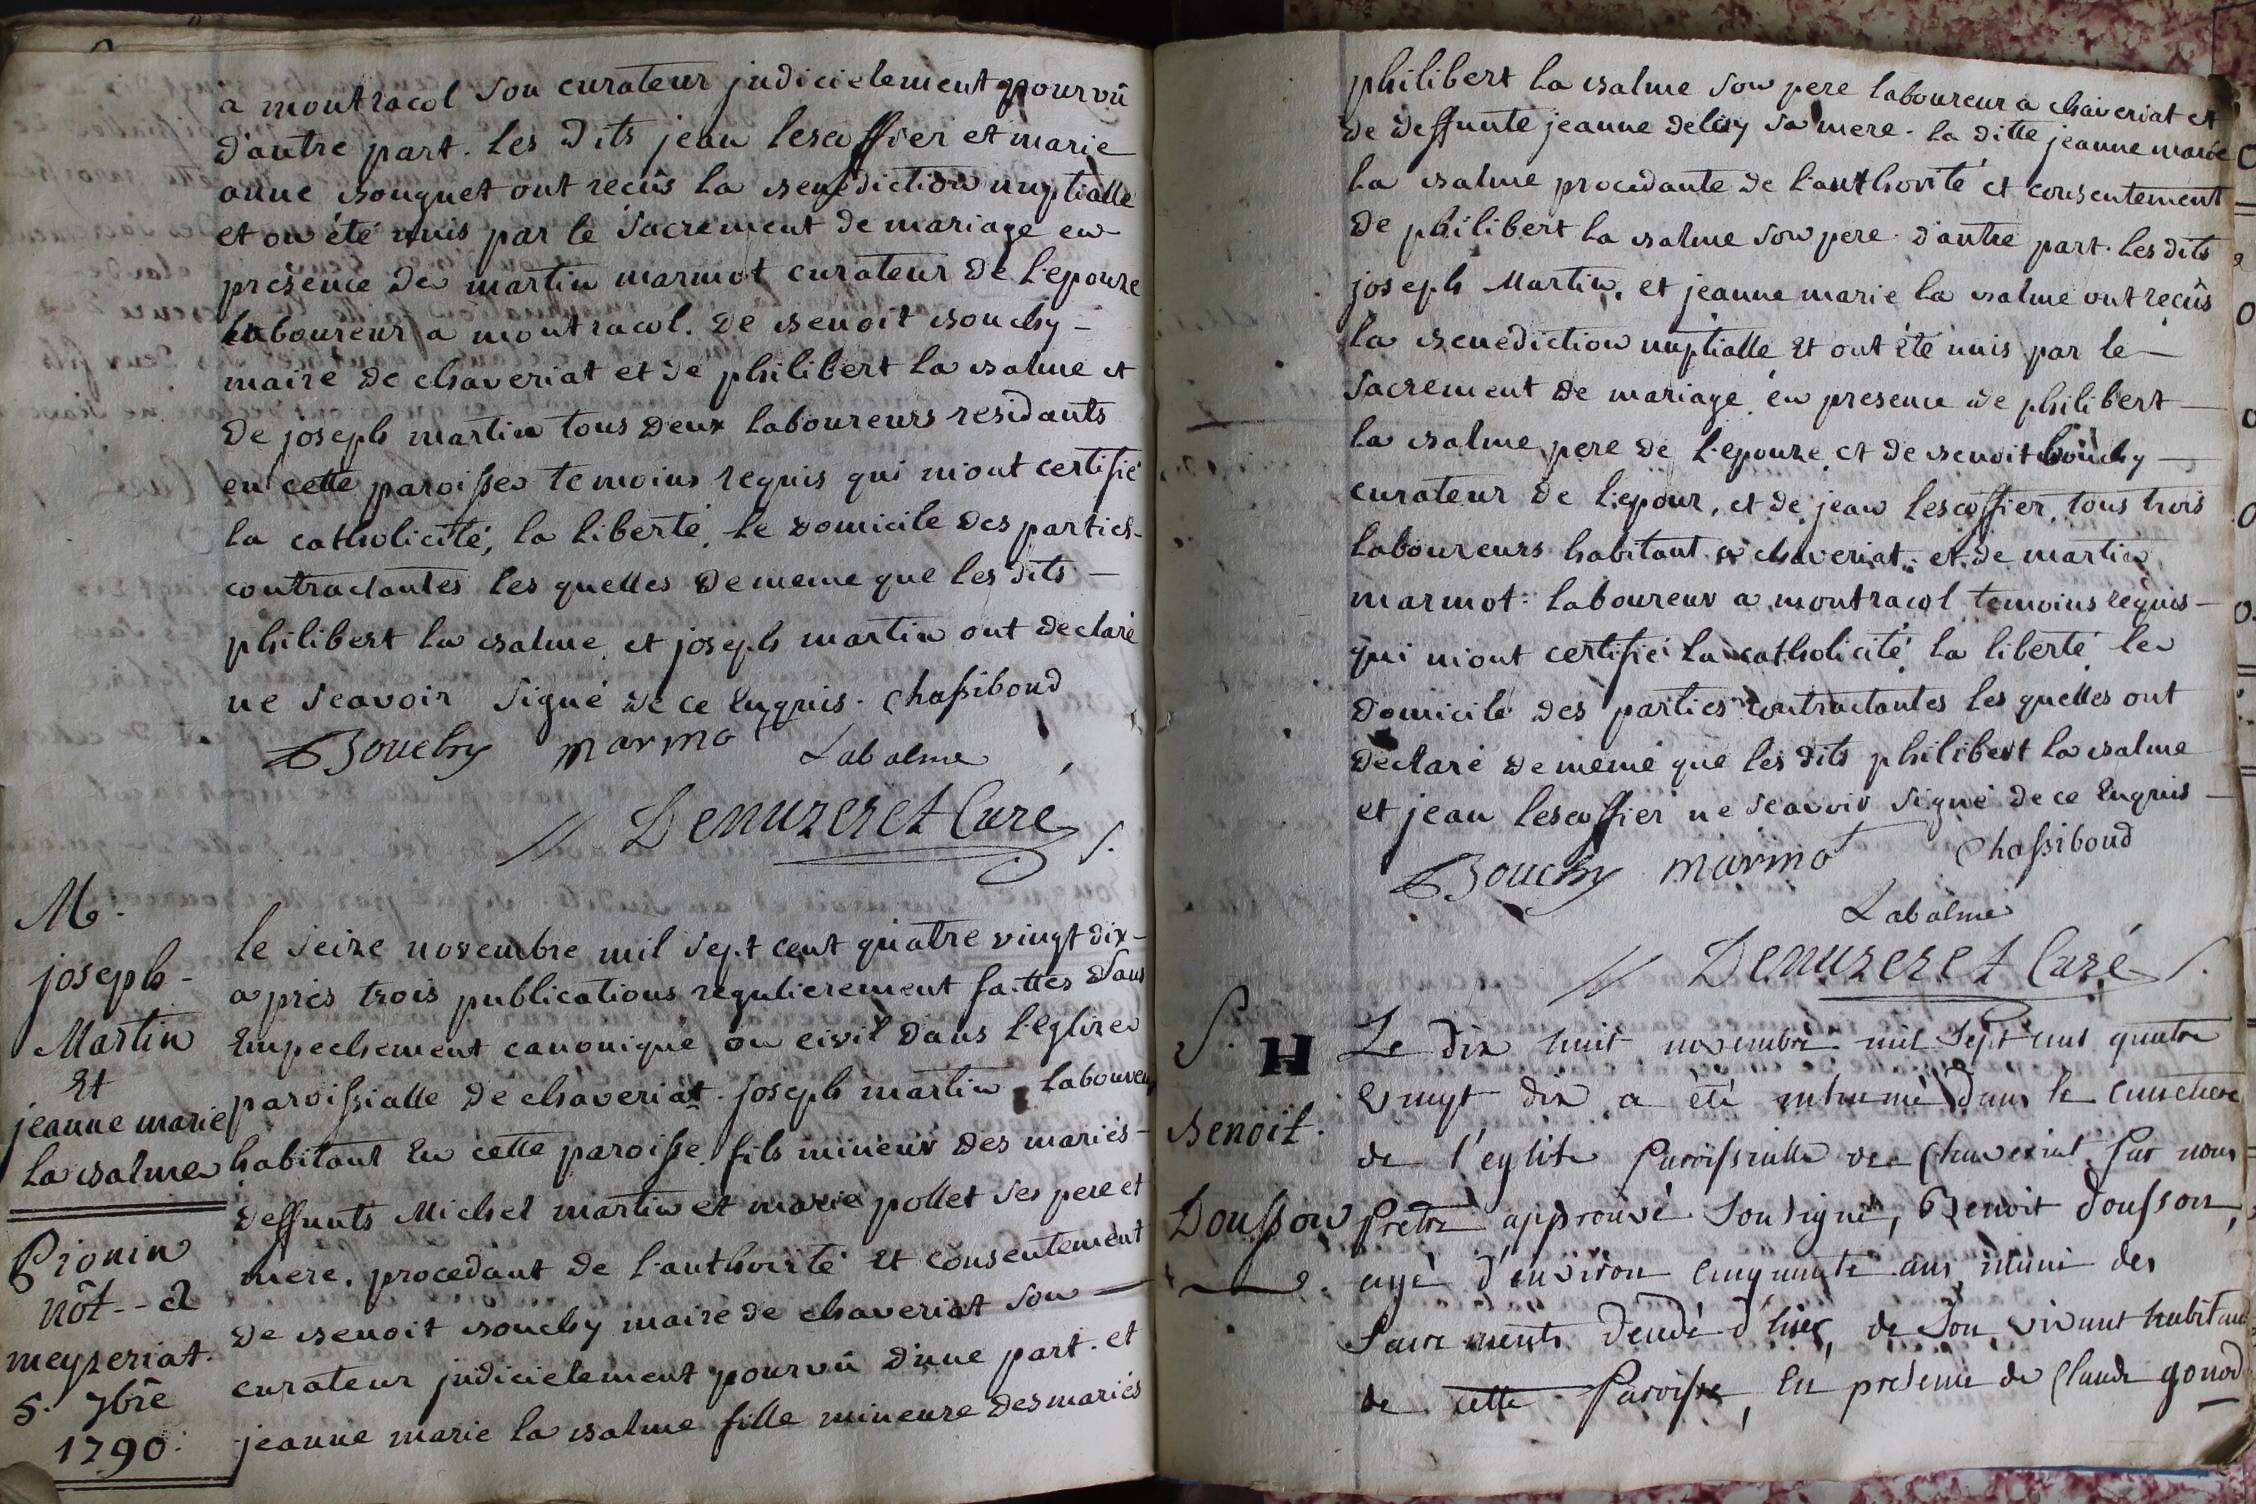 a montracol son curateur judicielement pourvû
d'autre part. les dits jean lescoffier et marie
anne bonguet ont recûs la benediction nuptialle
et on été unis par le sacrement de mariage en
presence de martin marmot curateur de l'epouze
laboureur a montracol. de benoit bouchy –
maire de chaveriat et de philibert la balme et
de joseph martin tous deux laboureurs residants
en cette paroisse temoins requis qui m'ont certifié
la catholicité, la liberté, le domicile des parties –
contractantes les quelles de meme que les dits –
philibert la balme et joseph martin ont declaré
ne scavoir signé de ce enquis. Chassiboud
Bouchy marmot
Labalme
Denuzeret Curé
M.
joseph –
Martin
Et
jeanne marie
la balme
Pionin
nôt - - a
meyzeriat.
5. 7bre
1790.
le seize novembre mil sept cent quatre vingt dix –
après trois publications regulierement faittes sans
Empechement canonique ou civil dans l'eglize
paroissialle de chaveriat. joseph martin laboureur
habitant en cette paroisse fils mineur des mariés –
deffunts Michel martin et marie pollet ses pere et
mere, procedant de l'authorité Et consentement
de benoit bouchy maire de chaveriat son —
curateur judicielement pourvû d'une part. et
jeanne marie la balme fille mineure des mariés
philibert la balme son pere laboureur a chaveriat et
de deffunte jeanne sa mere. la ditte jeanne marie
la balme procedante de l'authorité et consentement
de philibert la balme son pere. d'autre part. les dits
joseph Martin, et jeanne marie la balme ont recûs
la benediction nuptialle Et ont été unis par le –
sacrement de mariage en presence de philibert –
la balme pere de l'epouze et de benoit bouchy –
curateur de l'epour, et de jean lescoffier, tous trois
laboureurs habitant a chaveriat. et de martin
marmot laboureur a montracol temoins requis –
qui m'ont certifié la catholicité la liberté le
domicile des parties contractantes les quelles ont
declaré de meme que les dits philibert la balme
et jean lescoffier ne scavoir signé de ce Enquis –
Bouchy marmot Chassiboud
Labalme
Denuzeret Curé
S. H
benoit.
Dousson
Le dix huit novembre mil sept cens quatre
vingt dix a été inhumé dans le cimetiere
de l'eglise Paroissialle de Chaveriat par nous
Pretre approuvé soussigné, Benoit Dousson,
agé d'environ cinquante ans, muni des
Sacrements decedé d'hier, de son vivant habitant
de cette Paroisse, En presence de Claude gonod